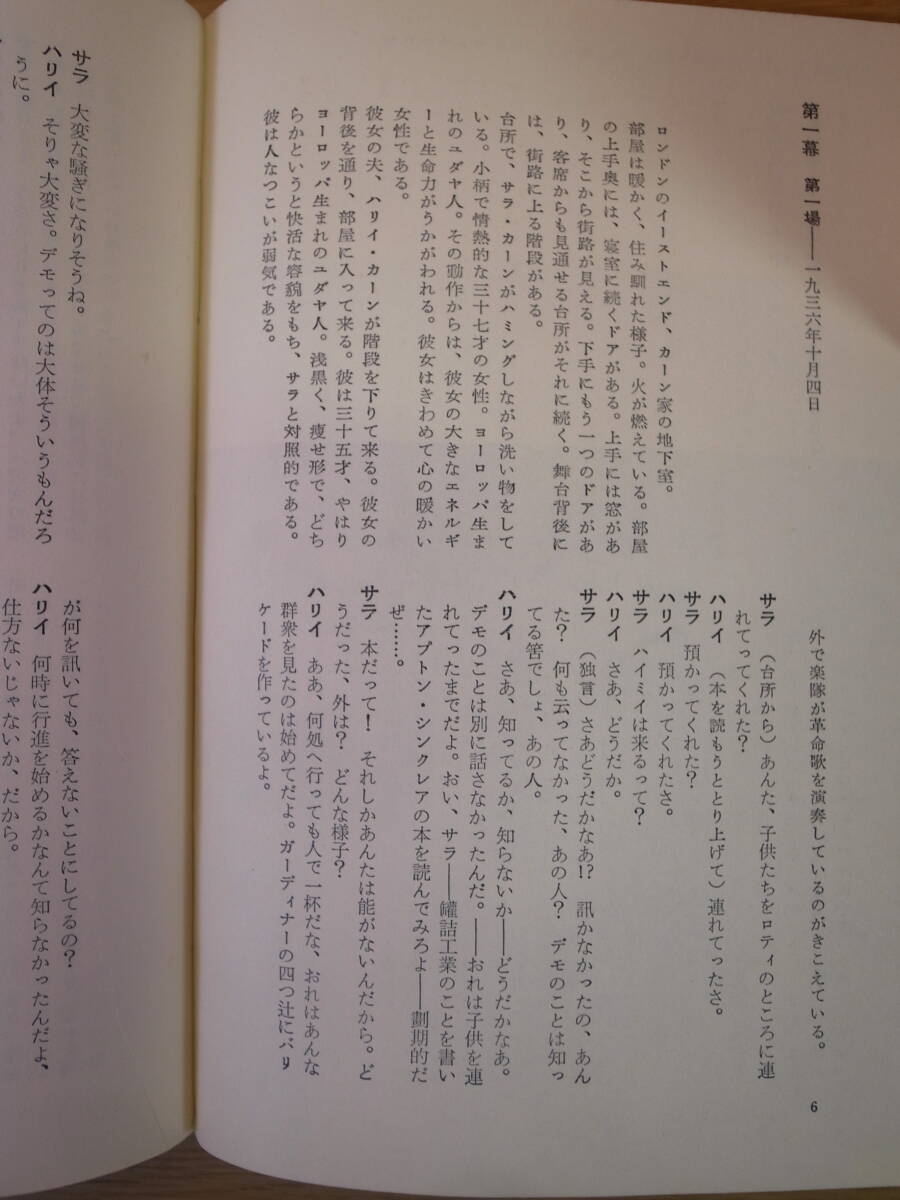 第一幕　第一場――一九三六年十月四日
ロンドンのイーストエンド、カーン家の地下室。
部屋は暖かく、住み馴れた様子。火が燃えている。部屋
の上手奥には、寝室に続くドアがある。上手には窓があ
り、そこから街路が見える。下手にもう一つのドアがあ
り、客席からも見通せる台所がそれに続く。舞台背後に
は、街路に上る階段がある。
台所で、サラ・カーンがハミングしながら洗い物をして
いる。小柄で情熱的な三十七才の女性。ヨーロッパ生ま
れのユダヤ人。その動作からは、彼女の大きなエネルギ
ーと生命力がうかがわれる。彼女はきわめて心の暖かい
女性である。
彼女の夫、ハリイ・カーンが階段を下りて来る。彼女の
背後を通り、部屋に入って来る。彼は三十五才、やはり
ヨーロッパ生まれのユダヤ人。浅黒く、痩せ形で、どち
らかというと快活な容貌をもち、サラと対照的である。
彼は人なつこいが弱気である。
外で楽隊が革命歌を演奏しているのがきこえている。
サラ　（台所から）あんた、子供たちをロティのところに連
れてってくれた？
ハリイ　（本を読もうととり上げて）連れてったさ。
サラ　預かってくれた？
ハリイ　預かってくれたさ。
サラ　ハイミイは来るって？
ハリイ　さあ、どうだか。
サラ　（独言）さあどうだかなあ!?　訊かなかったの、あん
た？　何も云ってなかった、あの人？　デモのことは知っ
てる筈でしょ、あの人。
ハリイ　さあ、知ってるか、知らないか――どうだかなあ。
デモのことは別に話さなかったんだ。――おれは子供を連
れてったまでだよ。おい、サラ――罐詰工業のことを書い
たアプトン・シンクレアの本を読んでみろよ――劃期的だ
ぜ……。
サラ　本だって！　それしかあんたは能がないんだから。ど
うだった、外は？　どんな様子？
ハリイ　ああ、何処へ行っても人で一杯だな、おれはあんな
群衆を見たのは始めてだよ。ガーディナーの四つ辻にバリ
ケードを作っているよ。
6
サラ　大変な騒ぎになりそうね。
ハリイ　そりゃ大変さ。デモってのは大体そういうもんだろ
うに。
が何を訊いても、答えないことにしてるの？
ハリイ　何時に行進を始めるかなんて知らなかったんだよ、
仕方ないじゃないか、だから。